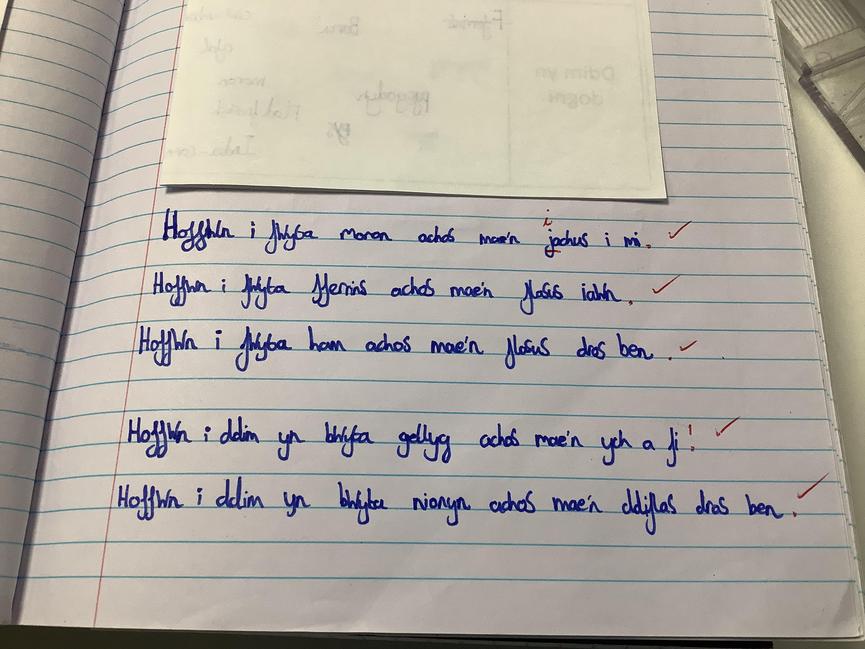 i
Hoffwn i fwyta moron achos mae'n jachus i mi.
Hoffwn i fwyta fferins achos mae'n flasis iawn.
Hoffwn i fwyta ham achos mae'n flasus dros ben.
Hoffwn i ddim yn bwyta gellyg achos mae'n ych a fi!
Hoffwn i ddim yn bwyta nionyn achos mae'n ddiflas dros ben.